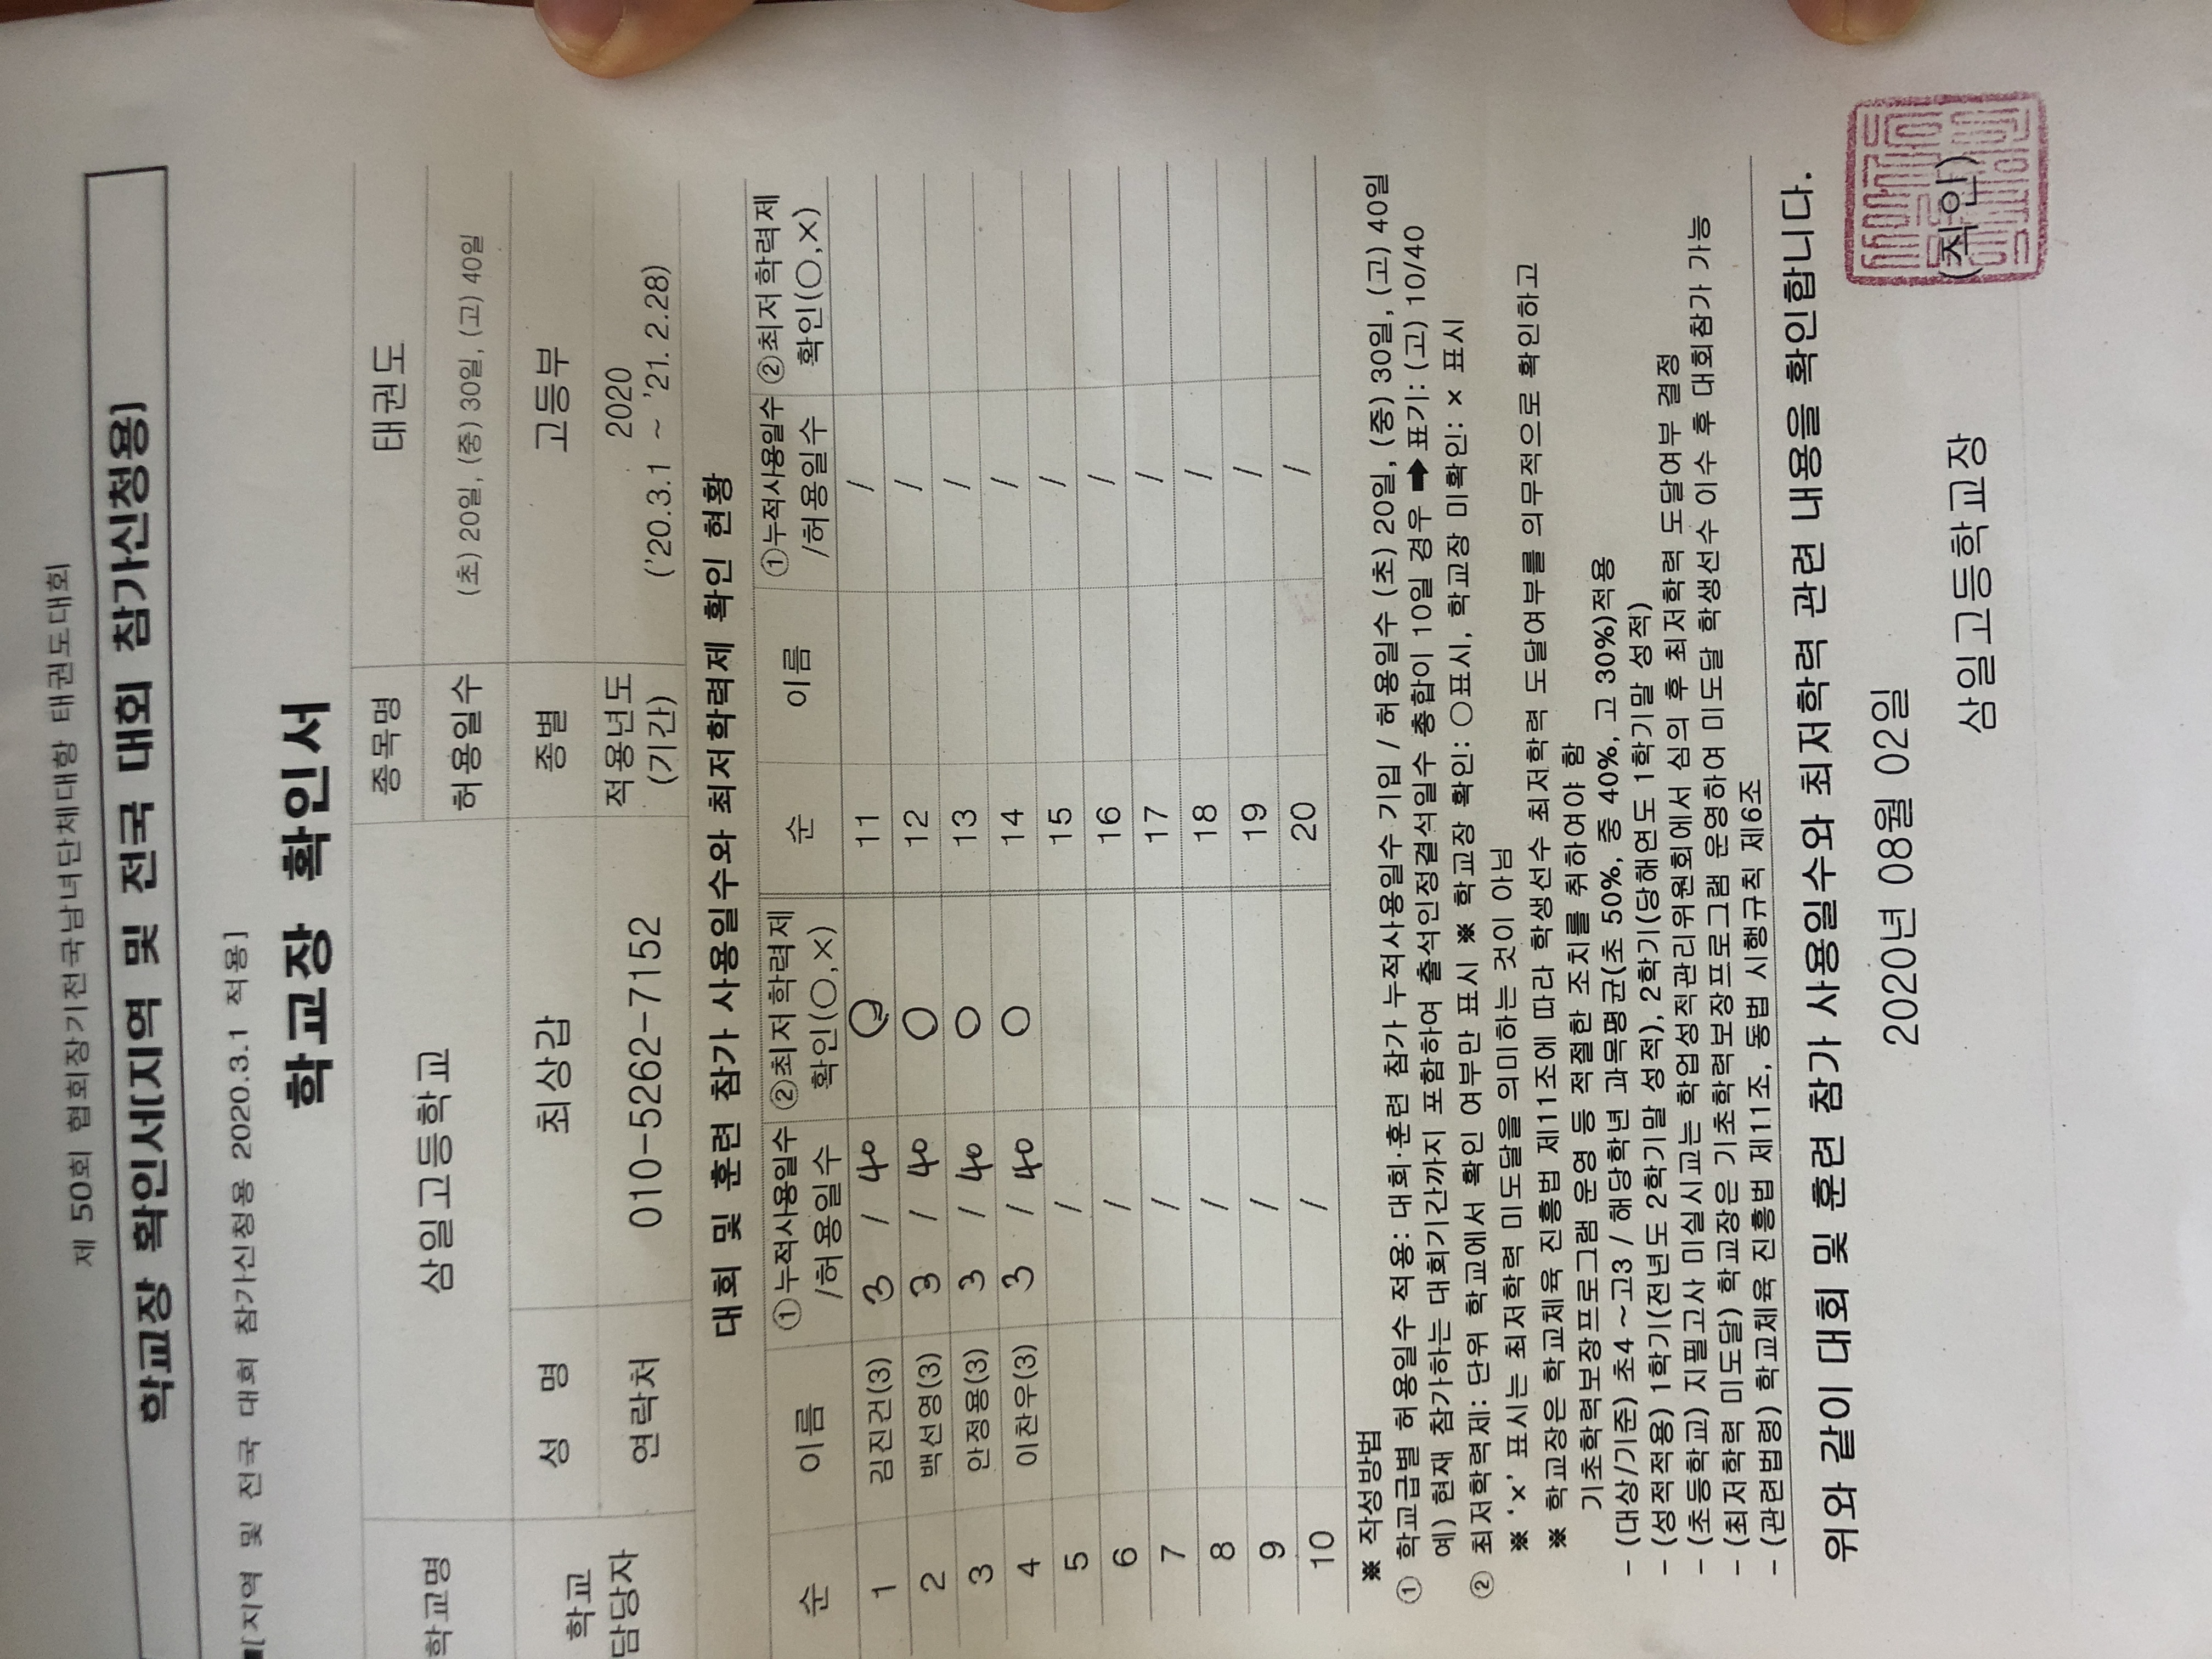 제 50회 협회장기전국남녀단체대항 태권도대회
학교장 확인서[지역 및 전국 대회 참가신청용]
■[지역 및 전국 대회 참가신청용 2020.3.1 적용]
학교장 확인서
학교명 삼일고등학교 종목명 태권도
허용일수 (초) 20일, (중) 30일, (고) 40일
학교 담당자 성 명 최상갑 종별 고등부
연락처 010-5262-7152 적용년도 (기간) 2020 ('20.3.1 ~ '21. 2.28)
대회 및 훈련 참가 사용일수와 최저학력제 확인 현황
순 이름 ①누적사용일수 /허용일수 ②최저학력제 확인(○,×) 순 이름 ①누적사용일수 /허용일수 ②최저학력제 확인(○,×)
1 김진건(3) 3 / 40 ○ 11 /
2 백선영(3) 3 / 40 ○ 12 /
3 안정용(3) 3 / 40 ○ 13 /
4 이찬우(3) 3 / 40 ○ 14 /
5 / 15 /
6 / 16 /
7 / 17 /
8 / 18 /
9 / 19 /
10 / 20 /
※ 작성방법
① 학교급별 허용일수 적용: 대회·훈련 참가 누적사용일수 기입 / 허용일수 (초) 20일, (중) 30일, (고) 40일
예) 현재 참가하는 대회기간까지 포함하여 출석인정결석일수 총합이 10일 경우 ➡ 표기: (고) 10/40
② 최저학력제: 단위 학교에서 확인 여부만 표시 ※ 학교장 확인: ○표시, 학교장 미확인: × 표시
※ '×' 표시는 최저학력 미도달을 의미하는 것이 아님
※ 학교장은 학교체육 진흥법 제11조에 따라 학생선수 최저학력 도달여부를 의무적으로 확인하고
기초학력보장프로그램 운영 등 적절한 조치를 취하여야 함
- (대상/기준) 초4 ~고3 / 해당학년 과목평균(초 50%, 중 40%, 고 30%)적용
- (성적적용) 1학기(전년도 2학기말 성적), 2학기(당해연도 1학기말 성적)
- (초등학교) 지필고사 미실시교는 학업성적관리위원회에서 심의 후 최저학력 도달여부 결정
- (최저학력 미도달) 학교장은 기초학력보장프로그램 운영하여 미도달 학생선수 이수 후 대회참가 가능
- (관련법령) 학교체육 진흥법 제11조, 동법 시행규칙 제6조
위와 같이 대회 및 훈련 참가 사용일수와 최저학력 관련 내용을 확인합니다.
2020년 08월 02일
삼일고등학교장 (직인)